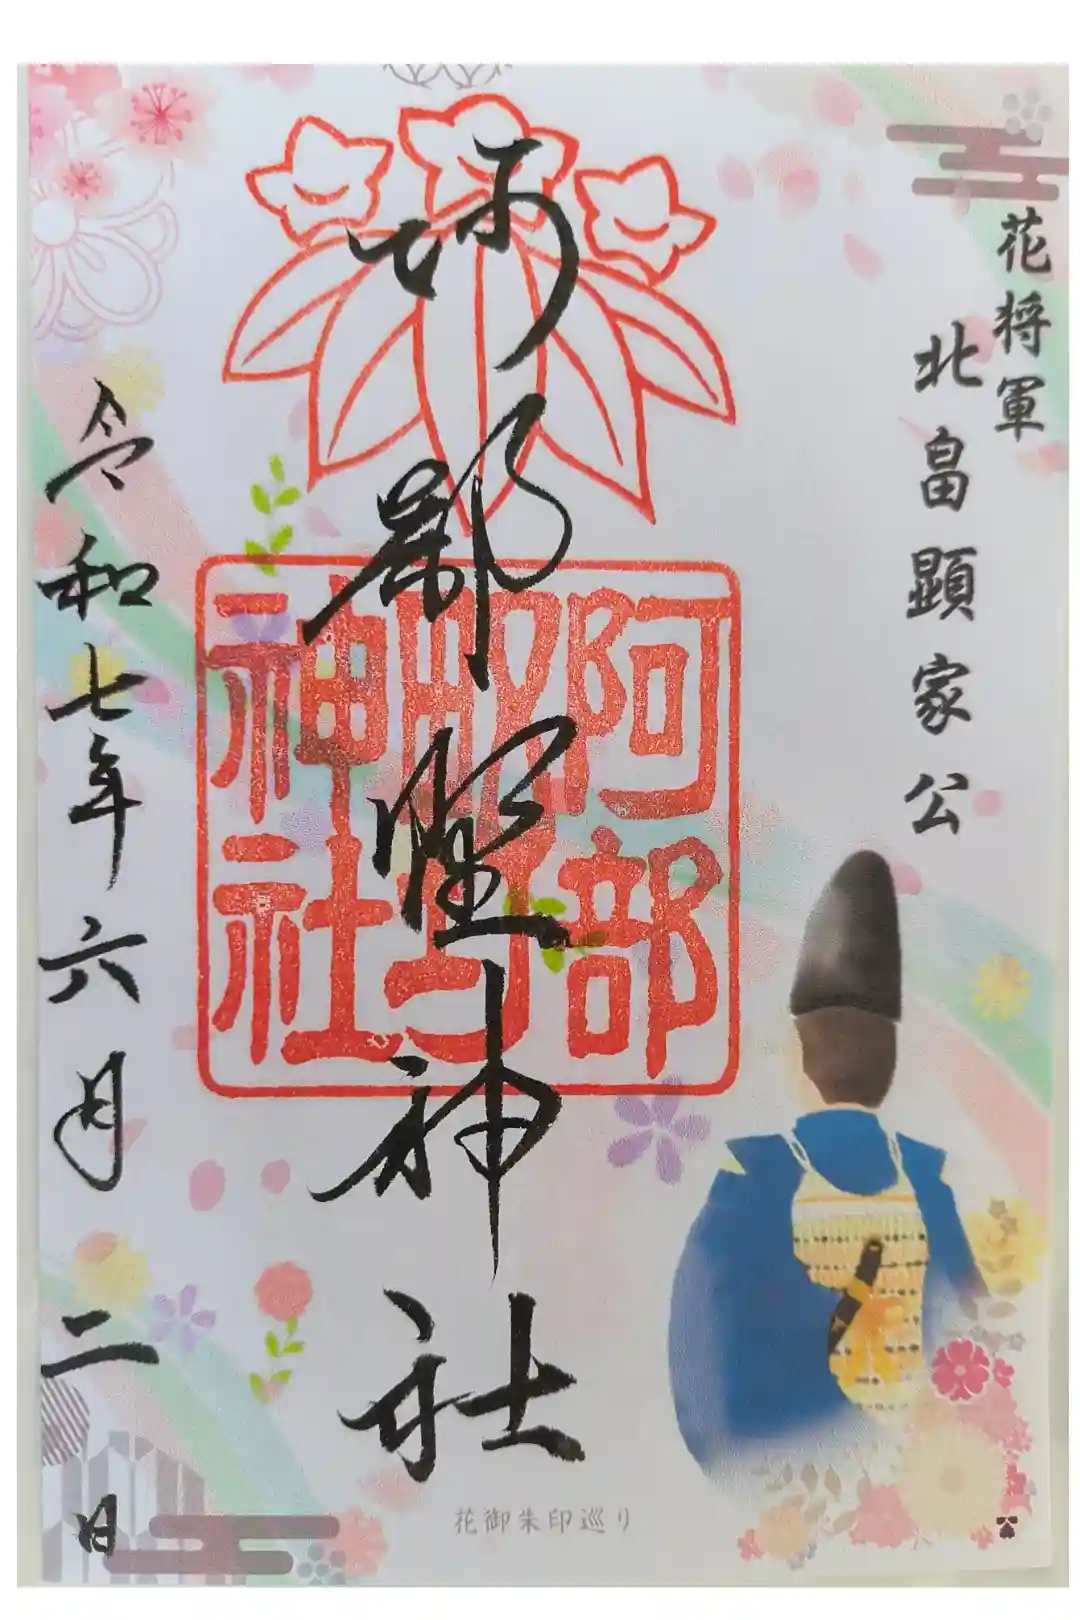 花将軍
北畠顕家公
阿部野神社
阿部
野
神社
令和七年六月二日
花御朱印巡り